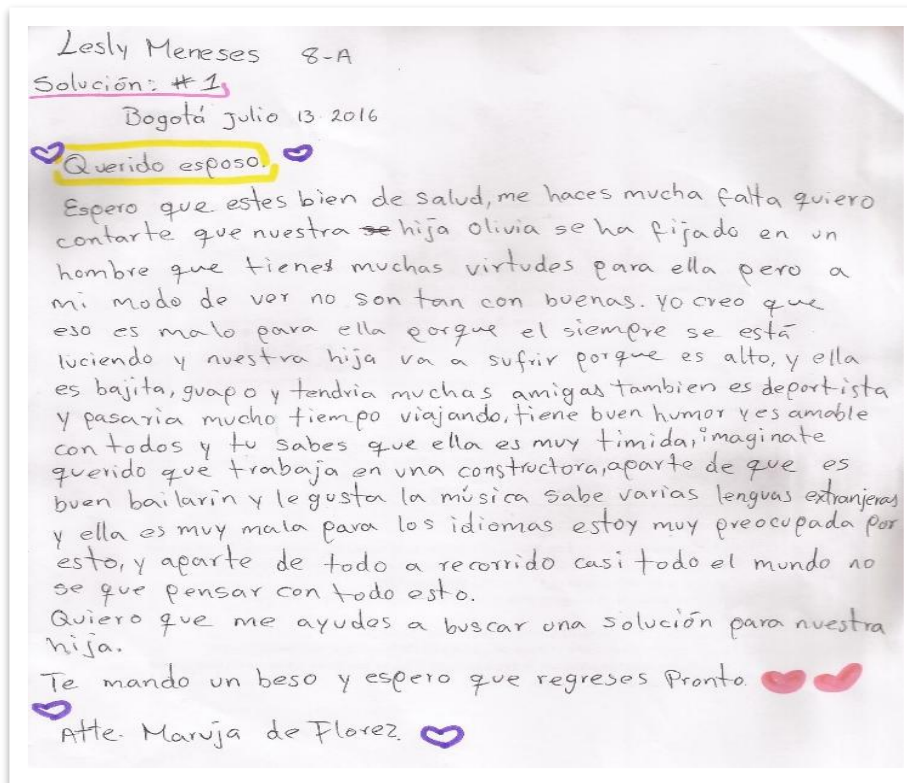 Lesly Meneses 8-A
Solución: #1
Bogotá Julio 13 2016
Querido esposo.
Espero que estes bien de salud, me haces mucha falta quiero
contarte que nuestra se hija Olivia se ha fijado en un
hombre que tienes muchas virtudes para ella pero a
mi modo de ver no son tan con buenas. Yo creo que
eso es malo para ella porque el siempre se está
luciendo y nuestra hija va a sufrir porque es alto, y ella
es bajita, guapo y tendria muchas amigas tambien es deportista
y pasaria mucho tiempo viajando, tiene buen humor y es amable
con todos y tu sabes que ella es muy timida, imaginate
querido que trabaja en una constructora, aparte de que es
buen bailarin y le gusta la música sabe varias lenguas extranjeras
y ella es muy mala para los idiomas estoy muy preocupada por
esto, y aparte de todo a recorrido casi todo el mundo no
se que pensar con todo esto.
Quiero que me ayudes a buscar una solución para nuestra
hija.
Te mando un beso y espero que regreses Pronto.
Atte. Maruja de Florez.